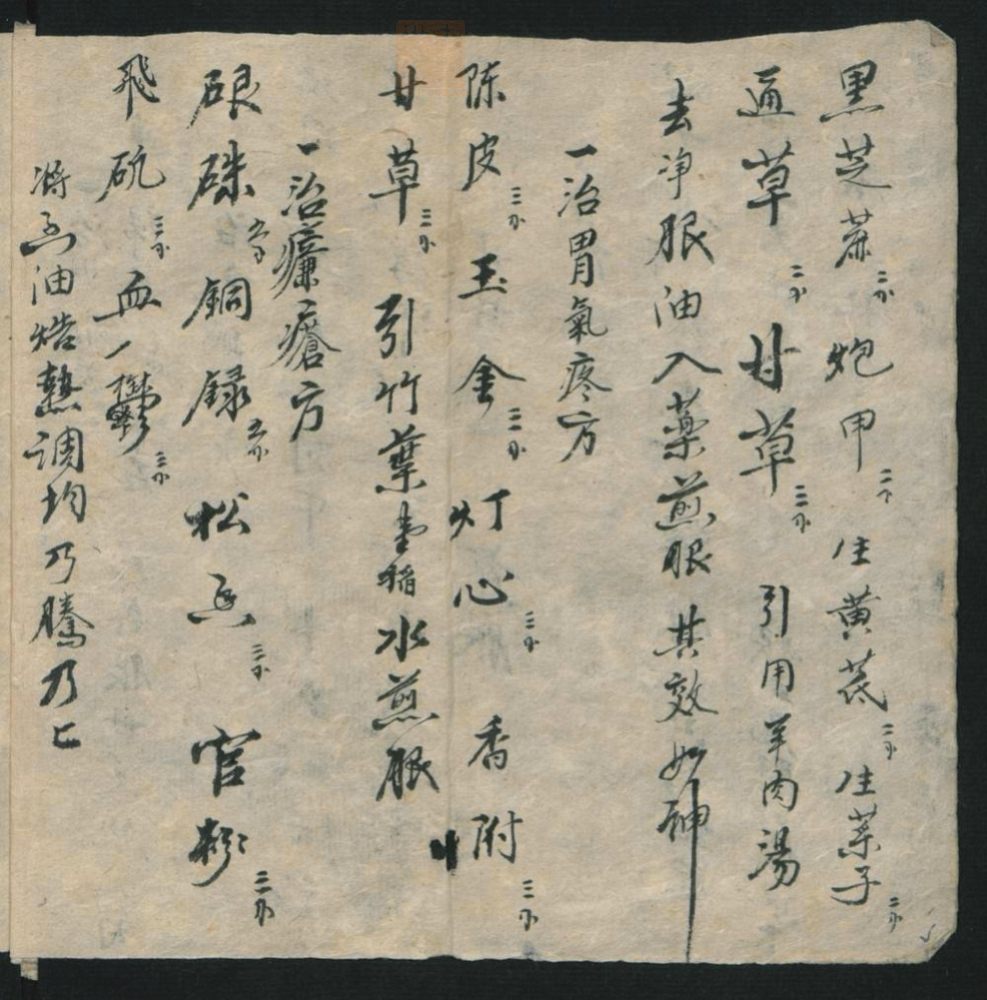 黒芝蔴二分 炮甲二个 生黄芪二分 生菜子二分
通草二分 甘草三分 引用羊肉湯
去净服油入藥煎服其效如神
一治胃氣疼方
陈皮三分 玉金三分 灯心三分 香附三分
甘草三分 引竹葉 水煎服
一治臁瘡方
硍硃五分 銅録五分 松香三分 官粉二分
飛矾三分 血一 三分
将 油焅熱調均乃騰乃上